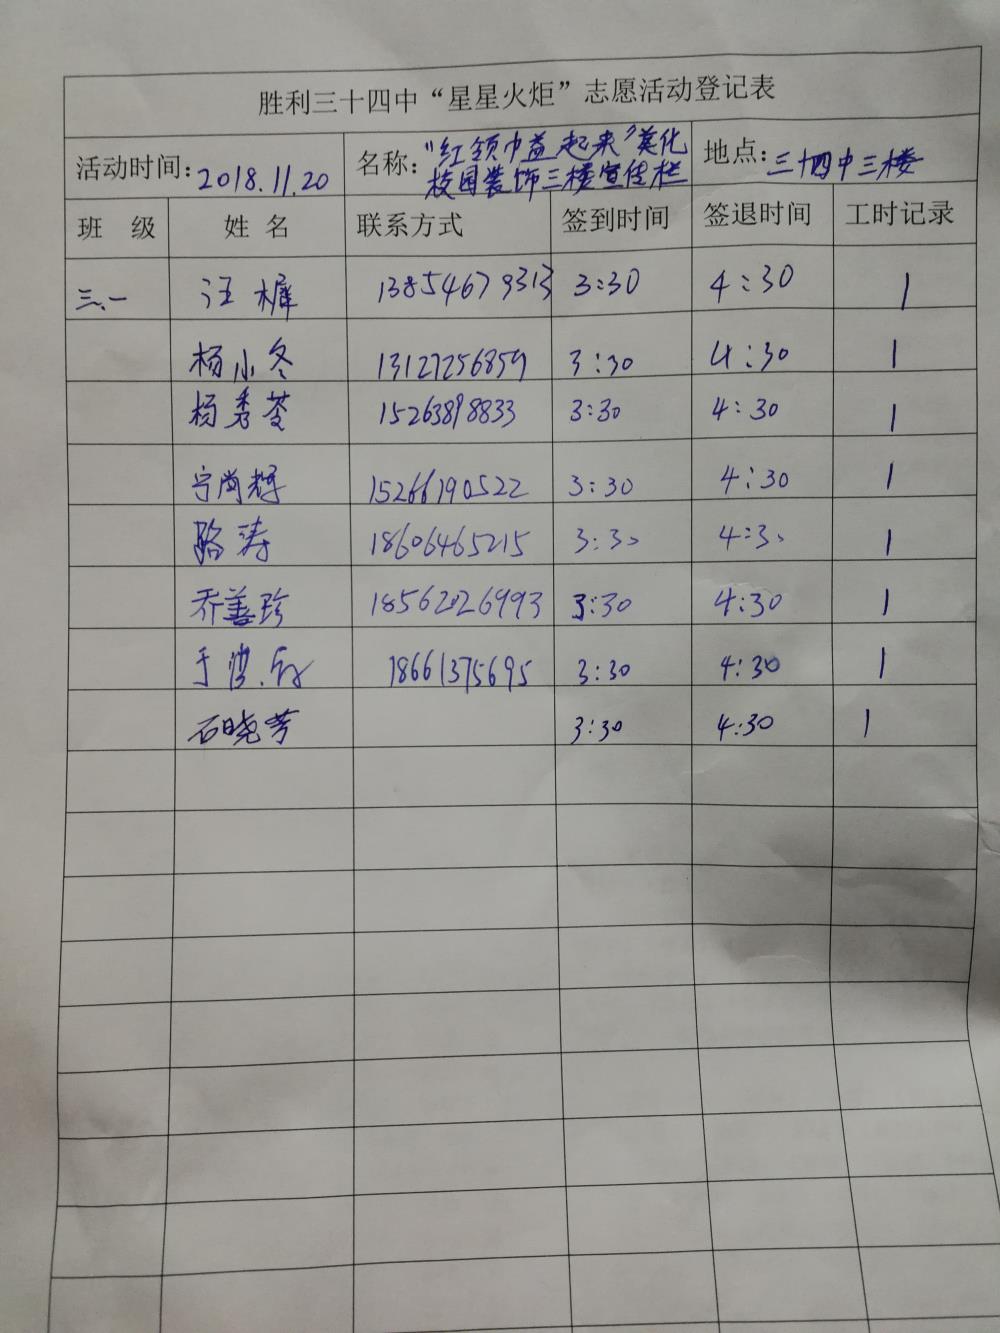 胜利三十四中“星星火炬”志愿活动登记表
活动时间：2018.11.20 名称：“红领巾益起来”美化校园装饰三楼宣传栏 地点：三十四中三楼
班 级 姓 名 联系方式 签到时间 签退时间 工时记录
三、一 汪 13854679313 3:30 4:30 1
杨小冬 13127256859 3:30 4:30 1
杨秀苓 15263898833 3:30 4:30 1
宁尚辉 15266190522 3:30 4:30 1
骆涛 18606465215 3:30 4:30 1
乔善珍 18562026993 3:30 4:30 1
于 18661375695 3:30 4:30 1
石晓芳 3:30 4:30 1